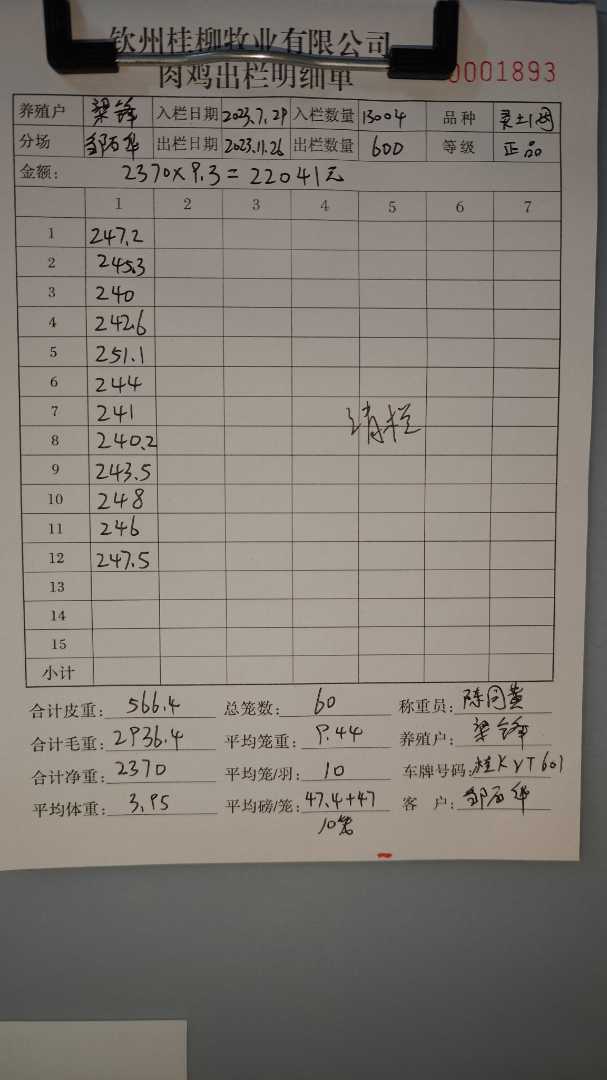 钦州桂柳牧业有限公司
肉鸡出栏明细单
0001893
养殖户 梁锋 入栏日期 2023.7.29 入栏数量 13004 品种
分场 邹石华 出栏日期 2023.11.26 出栏数量 600 等级 正品
金额: 2370×9.3=22041元
1 2 3 4 5 6 7
1 247.2
2 245.3
3 240
4 242.6
5 251.1
6 244
7 241
清栏
8 240.2
9 243.5
10 248
11 246
12 247.5
13
14
15
小计
合计皮重: 566.4 总笼数: 60 称重员: 陈同黄
合计毛重: 2936.4 平均笼重: 9.44 养殖户: 梁锋
合计净重: 2370 平均笼/羽: 10 车牌号码: 桂KYT601
平均体重: 3.95 平均磅/笼: 47.4+47 客 户: 邹石华
10笼